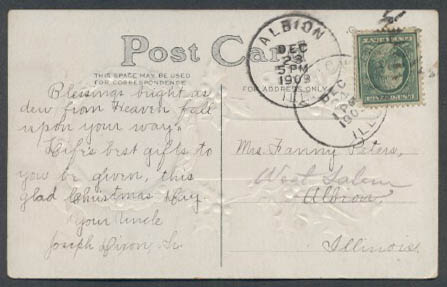 Post Card
THIS SPACE MAY BE USED
FOR CORRESPONDENCE
FOR ADDRESS ONLY
ALBION
DEC
23
5 PM
1909
ILL.
DEC
ILL.
Blessings bright as
dew from Heaven fall
upon your way.
Life's best gifts to
you be given, this
glad Christmas Day
Your Uncle
Joseph Dixon, Sr
Mrs. Fanny Peters,
West Salem
Albion
Illinois